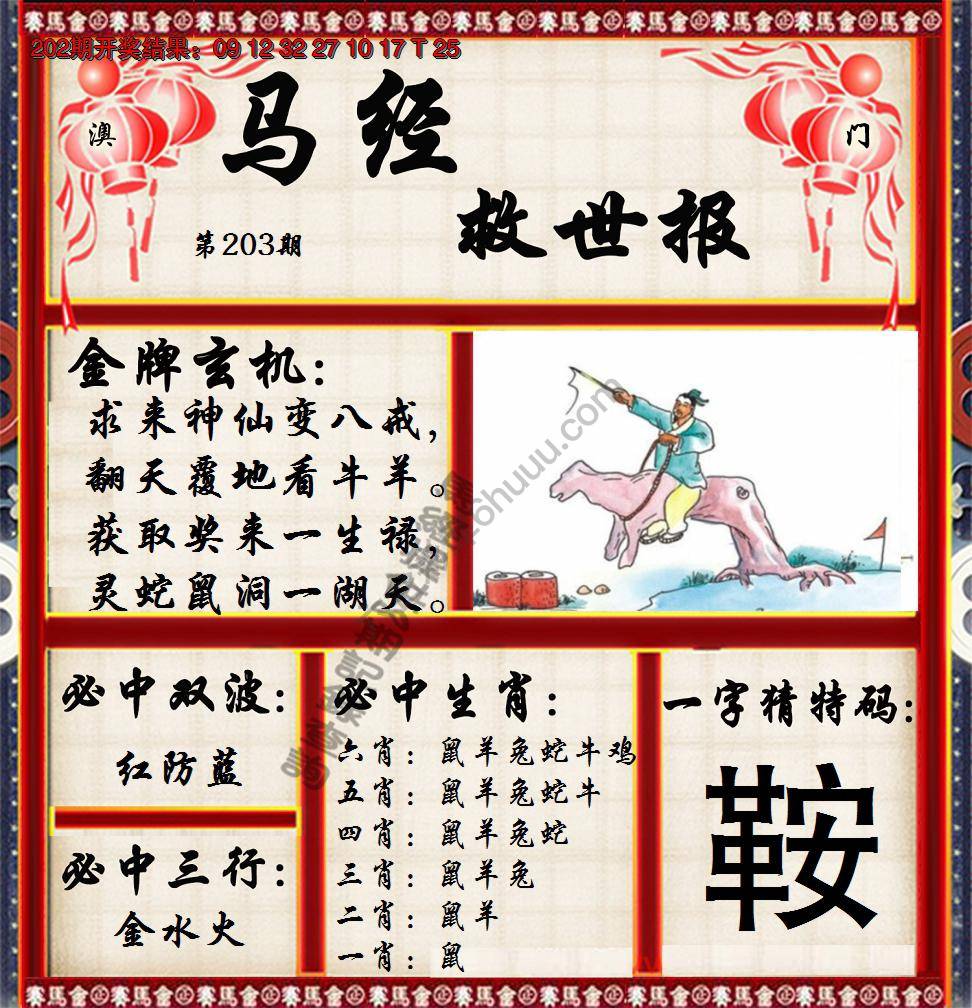 202期开奖结果：09 12 32 27 10 17 T 25
澳
门
马经
救世报
第203期
金牌玄机：
求来神仙变八戒，
翻天覆地看牛羊。
获取奖来一生禄，
灵蛇鼠洞一湖天。
必中双波：
红防蓝
必中三行：
金水火
必中生肖：
六肖：鼠羊兔蛇牛鸡
五肖：鼠羊兔蛇牛
四肖：鼠羊兔蛇
三肖：鼠羊兔
二肖：鼠羊
一肖：鼠
一字猜特码：
鞍